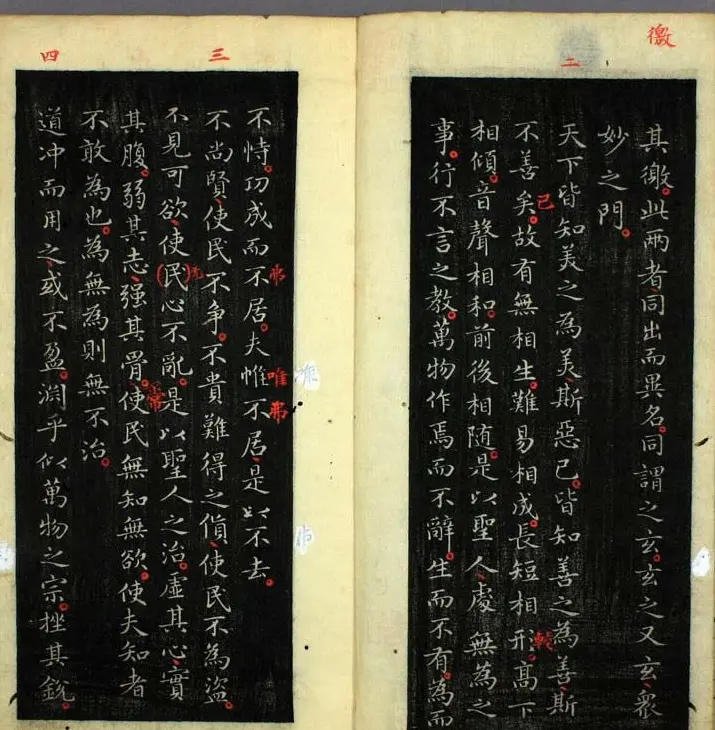 徼
其徼。此兩者、同出而異名。同謂之玄。玄之又玄、衆
妙之門。
二
天下皆知美之為美、斯惡已。皆知善之為善、斯
已
不善矣。故有無相生。難易相成。長短相形。高下
較
相傾。音聲相和。前後相隨。是以聖人、處無為之
事。行不言之教。萬物作焉而不辭。生而不有。為而
三
不恃。功成而不居。夫惟不居、是以不去。
弗
唯弗
不尚賢、使民不争。不貴難得之貨、使民不為盜。
不見可欲、使(民)心不亂。是以聖人之治。虛其心、實
其腹。弱其志、强其骨。使民無知無欲。使夫知者
常
不敢為也。為無為則無不治。
四
道冲而用之、或不盈。淵乎似萬物之宗。挫其銳。